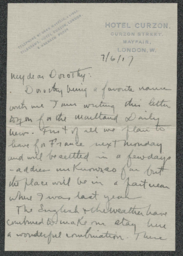 HOTEL CURZON
CURZON STREET,
MAYFAIR,
LONDON, W.
7/6/17
My dear Dorothy:
Dorothy being a favorite name
with me I am writing this letter
to you for the Maitland Daily
News. First of all we plan to
leave for France next Monday
and will be settled in a few days
- address unknown so far but
the place will be in a part near
where I was last year.
The English & the weather have
combined to make our stay here
a wonderful combination. There